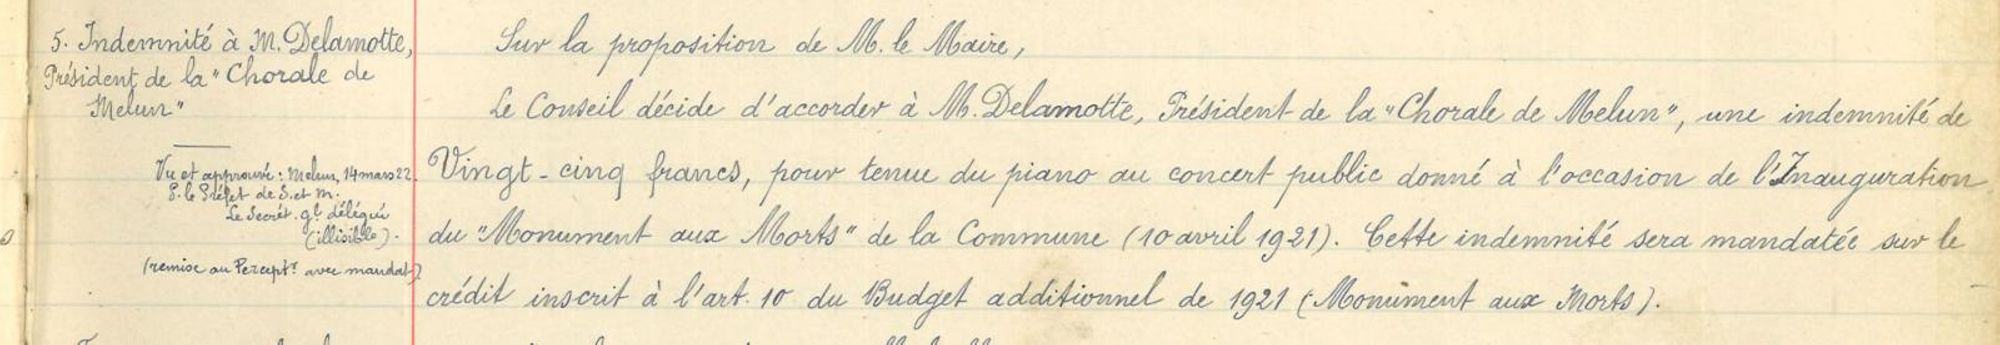 5. Indemnité à M. Delamotte,
Président de la "Chorale de
Melun"
Vu et approuvé : Melun, 14 mars 22.
P. le Préfet de S. et M.
Le Secrét. gl délégué
(illisible).
(remise au Percept.r avec mandat)
Sur la proposition de M. le Maire,
Le Conseil décide d'accorder à M. Delamotte, Président de la "Chorale de Melun", une indemnité de
Vingt-cinq francs, pour tenue du piano au concert public donné à l'occasion de l'Inauguration
du "Monument aux Morts" de la Commune (10 avril 1921). Cette indemnité sera mandatée sur le
crédit inscrit à l'art. 10 du Budget additionnel de 1921 (Monument aux Morts).